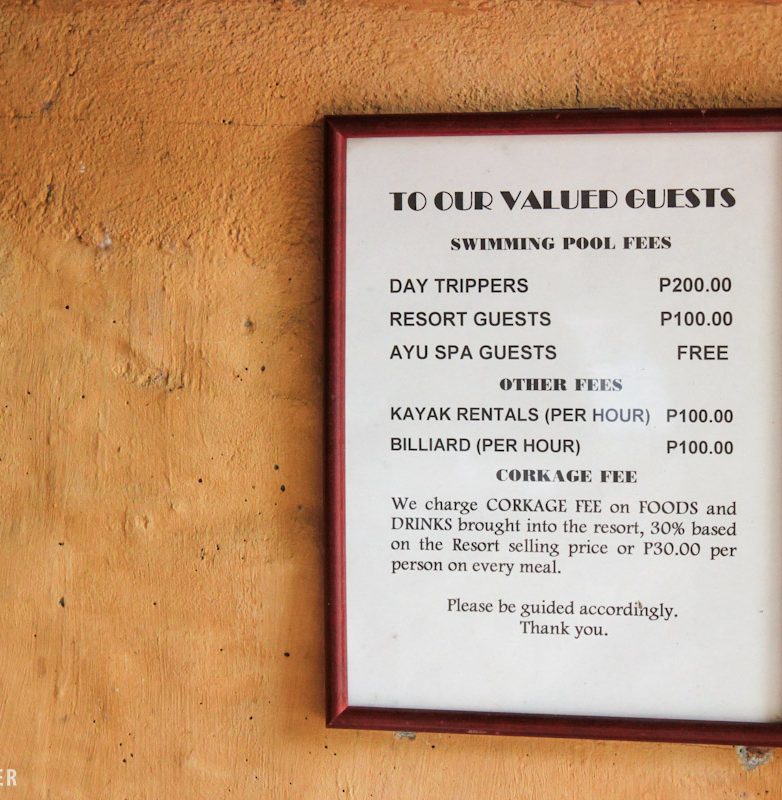 TO OUR VALUED GUESTS
SWIMMING POOL FEES
DAY TRIPPERS P200.00
RESORT GUESTS P100.00
AYU SPA GUESTS FREE
OTHER FEES
KAYAK RENTALS (PER HOUR) P100.00
BILLIARD (PER HOUR) P100.00
CORKAGE FEE
We charge CORKAGE FEE on FOODS and
DRINKS brought into the resort, 30% based
on the Resort selling price or P30.00 per
person on every meal.
Please be guided accordingly.
Thank you.
ER